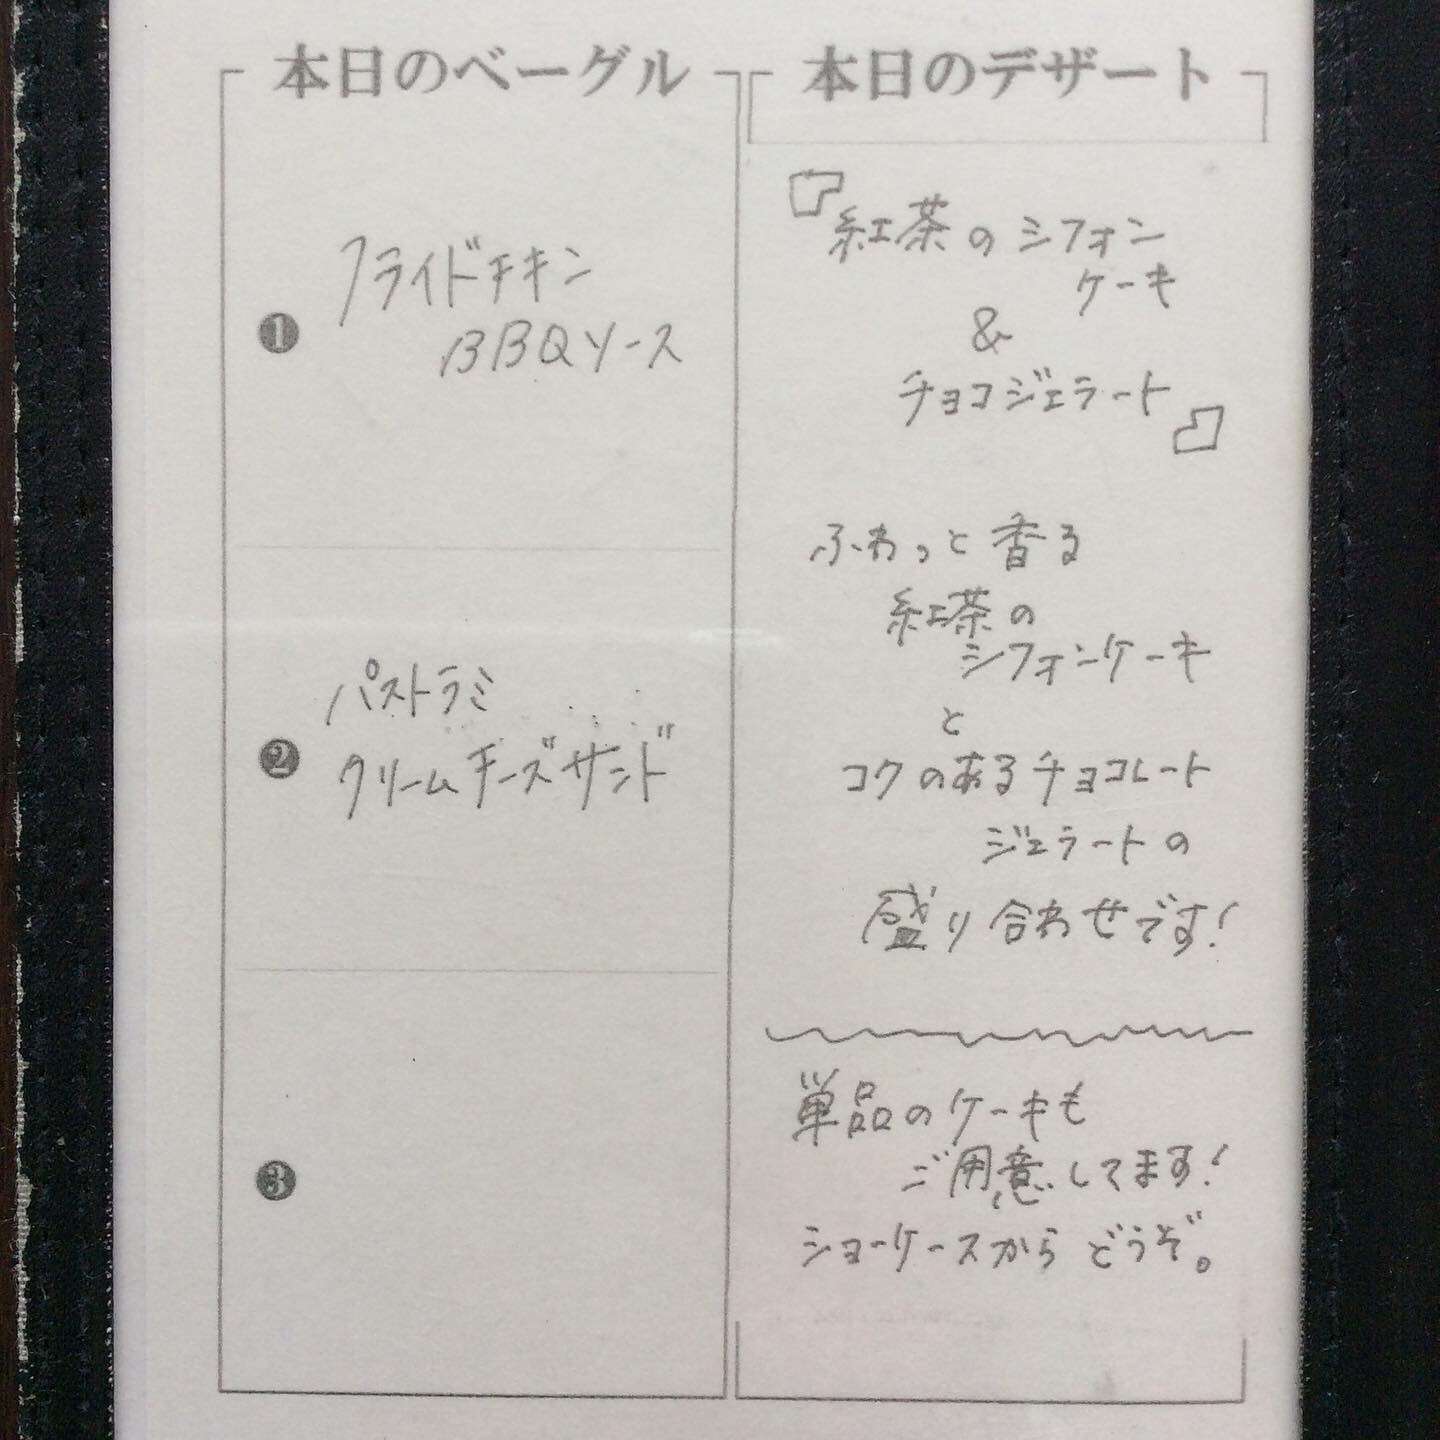 本日のベーグル
❶
フライドチキン
BBQソース
❷
パストラミ
クリームチーズサンド
❸
本日のデザート
『紅茶のシフォン
ケーキ
&
チョコジェラート』
ふわっと香る
紅茶の
シフォンケーキ
と
コクのあるチョコレート
ジェラートの
盛り合わせです!
単品のケーキも
ご用意してます!
ショーケースからどうぞ。